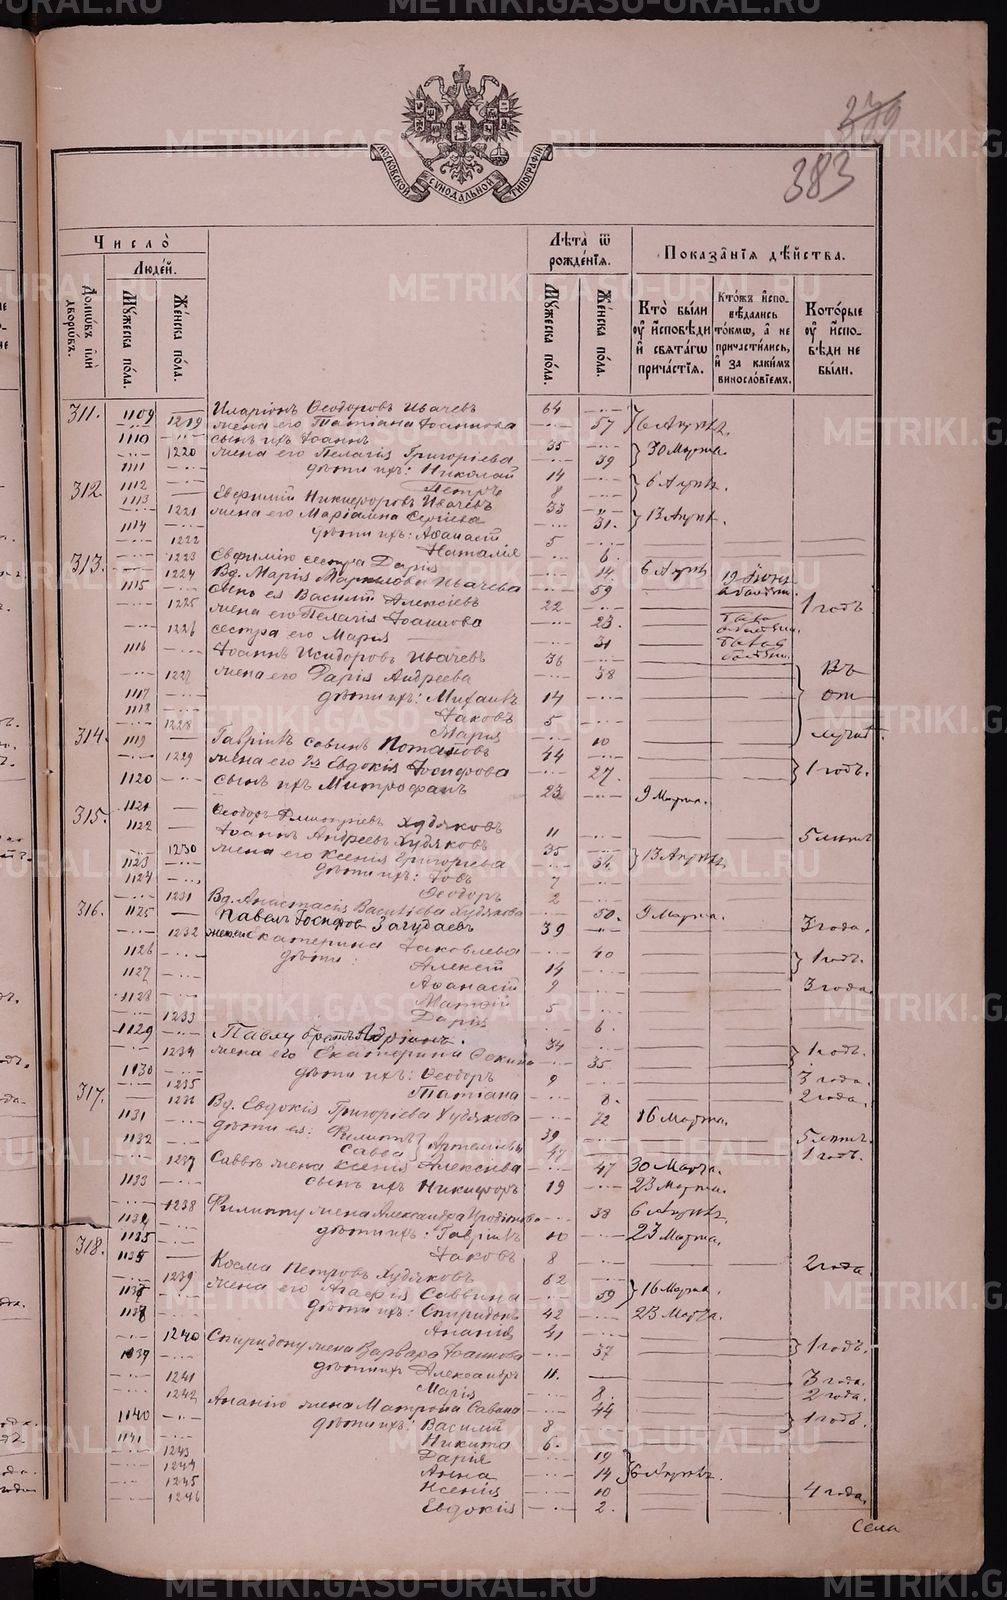 279
383
МОСКОВСКОЙ СѴНОДАЛЬНОЙ ТИПОГРАФІИ
Число̀
Людéй.
Домѡвъ и҆лѝ дворѡвъ.
Мꙋжеска по́ла.
Же́нска по́ла.
Лѣта̀ ѿ рожде́нїѧ.
Мꙋжеска по́ла.
Же́нска по́ла.
Показа̂нїѧ дѣ́йства.
Кто̀ бы́ли ᲂу҆ и҆сповѣди и҆ свѧта́гѡ прича́стїѧ.
Кто́жъ и҆спо-вѣдались то́кмѡ, а҆ не причасти́лись, и҆ за каки́мъ винослові́емъ.
Кото́рые ᲂу҆ и҆спо-вѣди не бы́ли.
311. 1109 Иларіонъ Ѳеодоровъ Ивачевъ 64
1219 жена его Татіана Іоаннова 57 6 Апрѣл.
1110 сынъ ихъ Іоаннъ 35
1220 жена его Пелагія Григоріева 39 30 Марта
1111 дѣти ихъ: Николай 14
1112 Петръ 8 6 Апрѣл.
312. 1113 Евфимій Никифоровъ Ивачевъ 33
1221 жена его Маріамна Сергіева 31. 13 Апрѣл.
1114 дѣти ихъ: Аѳанасій 5
1222 Наталія 6.
1223 Евфимію сестра Дарія 14. 6 Апрѣл
313. 1224 Вд. Марія Маркелова Ивачева 59
1115 сынъ ея Василій Алексіевъ 22 1 годъ
1225 жена его Пелагія Іоаннова 23.
1226 сестра его Марія 31
1116 Іоаннъ Исидоровъ Ивачевъ 36 Въ
1227 жена его Дарія Андреева 38 от
1117 дѣти ихъ: Михаилъ 14
1118 Іаковъ 5
1228 Марія 10
314. 1119 Гавріилъ Савинъ Потаповъ 44
1229 жена его Евдокія Іосифова 27. 1 годъ.
1120 сынъ ихъ Митрофанъ 23 9 Марта.
315. 1121 Ѳеодоръ Дмитріевъ Худяковъ 11 5 лѣтъ
1122 Іоаннъ Андреевъ Худяковъ 35
1230 жена его Ксенія Григоріева 34 13 Апрѣл.
1123 дѣти ихъ: Іовъ 7
1124 Ѳеодоръ 2
1231 Вд. Анастасія Василіева Худякова 50. 9 Марта.
316. 1125 Павелъ Іосифовъ Загудаевъ 39 3 года.
1232 жена Екатерина Іаковлева 40
1126 дѣти: Алексій 14 1 годъ.
1127 Аѳанасій 9 3 года.
1128 Матѳій 5
1233 Дарія 6.
1129 Павлу братъ Адріанъ. 34
1234 жена его Екатерина 35 1 годъ.
1130 дѣти ихъ: Ѳеодоръ 9 3 года.
1235 Татіана 8. 2 года.
317. 1236 Вд. Евдокія Григоріева Худякова 72 16 Марта.
1131 дѣти ея: Филиппъ 39 5 лѣтъ.
1132 Савва } Артеміевы 47 1 годъ.
1237 Саввѣ жена Ксенія Алексіева 47 30 Марта.
1133 сынъ ихъ Никифоръ 19 23 Марта.
1238 Филиппу жена Александра 38 6 Апрѣл.
1134 дѣти ихъ: Гавріилъ 10 23 Марта.
1135 Іаковъ 8 2 года.
318. 1136 Косма Петровъ Худяковъ 62
1239 жена его Агафія Саввина 59 16 Марта.
1137 дѣти ихъ: Спиридонъ 42 23 Марта.
1138 Ананія 41
1240 Спиридону жена Варвара Іоаннова 37 1 годъ.
1139 дѣти ихъ Александръ 11. 3 года.
1241 Марія 8. 2 года.
1242 Ананію жена Матрона Савина 44
1140 дѣти ихъ: Василій 8 1 годъ.
1141 Никита 6.
1243 Дарія 19
1244 Анна 14 6 Апрѣл.
1245 Ксенія 10
1246 Евдокія 2. 4 года.
Села
METRIKI.GASO-URAL.RU